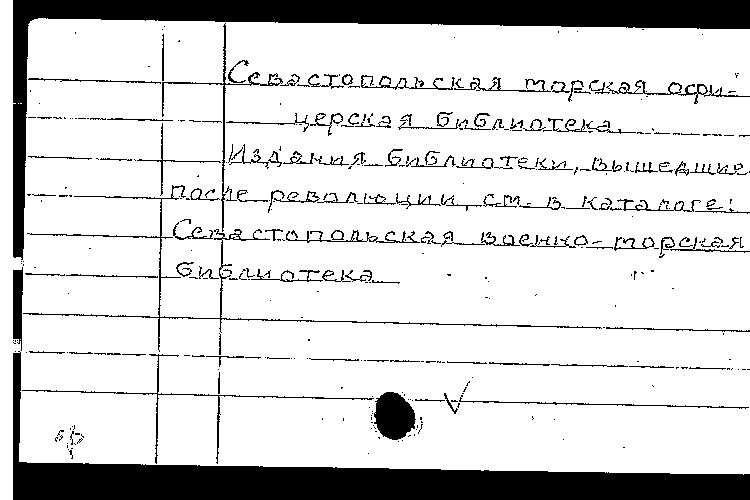 Севастопольская морская офи-
церская библиотека.
Издания библиотеки, вышедшие
после революции, см. в каталоге:
Севастопольская военно-морская
библиотека